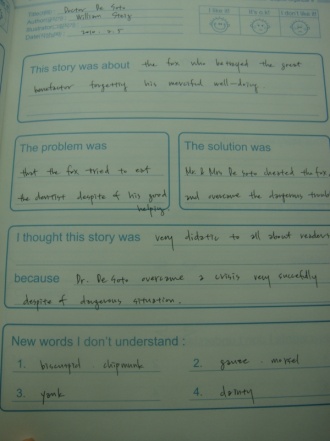 Doctor De Soto
William Steig
I like it! It's o.k! I don't like it!
This story was about the fox who betrayed the great
benefactor forgetting his merciful well-doing
The problem was
that the fox tried to eat
the dentist despite of his good
helping
The solution was
Mr & Mrs De Soto cheated the fox,
and overcame the dangerous trouble
I thought this story was very didatic to all about readers
because Dr. De Soto overcame a crisis very succefully
despite of dangerous situation.
New words I don't understand :
1. chipmunk 2. gauze . morsel
3. yank 4. dainty